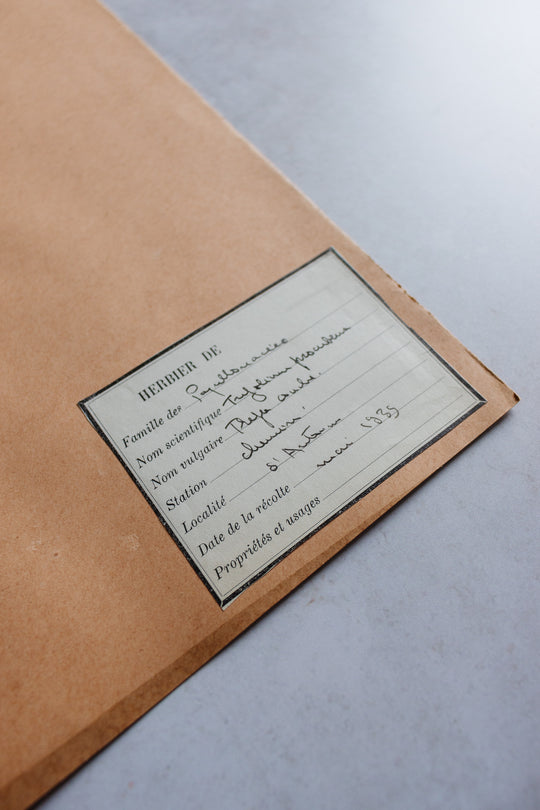 HERBIER DE
Famille des Papillonacées
Nom scientifique Trifolium procumbens
Nom vulgaire
Station chemin
Localité St Antonin
Date de la récolte mai 1939
Propriétés et usages